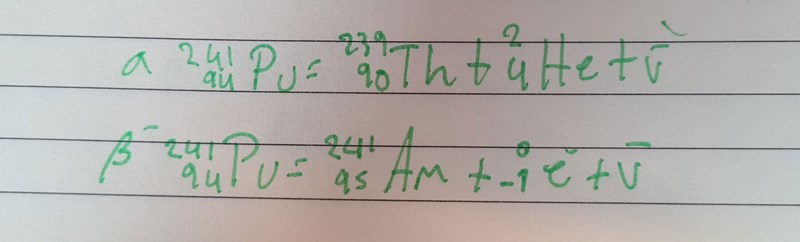 α ²⁴¹₉₄Pu = ²³⁹₉₀Th + ²₄He + v̄
β⁻ ²⁴¹₉₄Pu = ²⁴¹₉₅Am + ⁰₋₁e⁻ + v̄